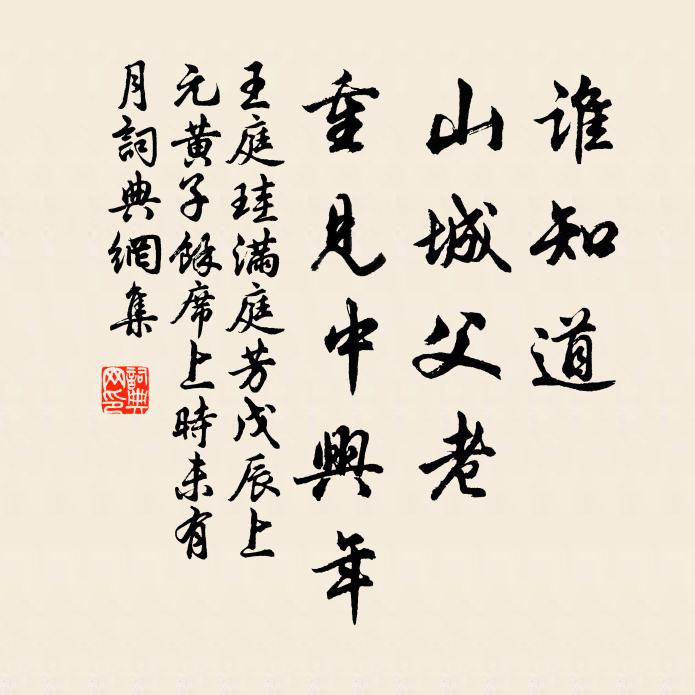 谁知道
山城父老
重見中興年
王庭珪滿庭芳戊辰上
元黃子餘席上時未有
月詞典網集
詞典
网印